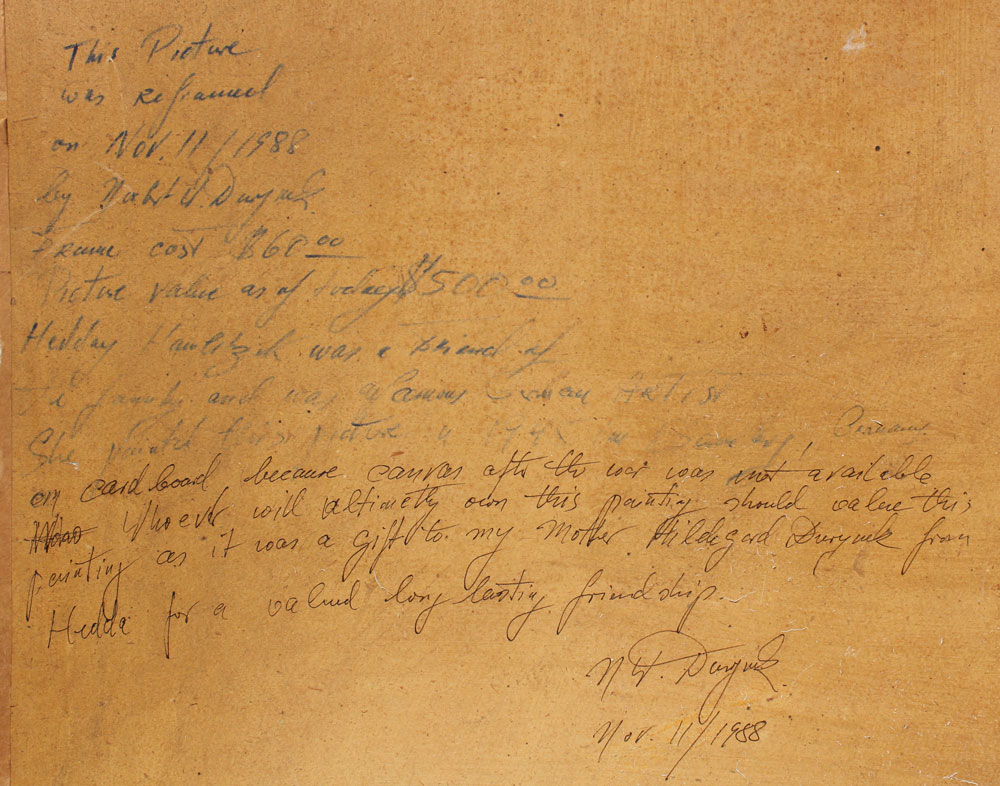 This Picture
was reframed
on Nov. 11/1988
by W. Durynek
Frame cost $60.00
Picture value as of today $500.00
Hedday was a friend of
family and was a famous German ARTIST
She this picture in in , Germany
on cardboard, because canvas after the war was not available
Whoever will ultimetly own this painting should value this
painting as it was a gift to my Mother Hildegard Durynek from
Hedda for a valued long lasting friendship.
N W. Durynek
Nov. 11/1988